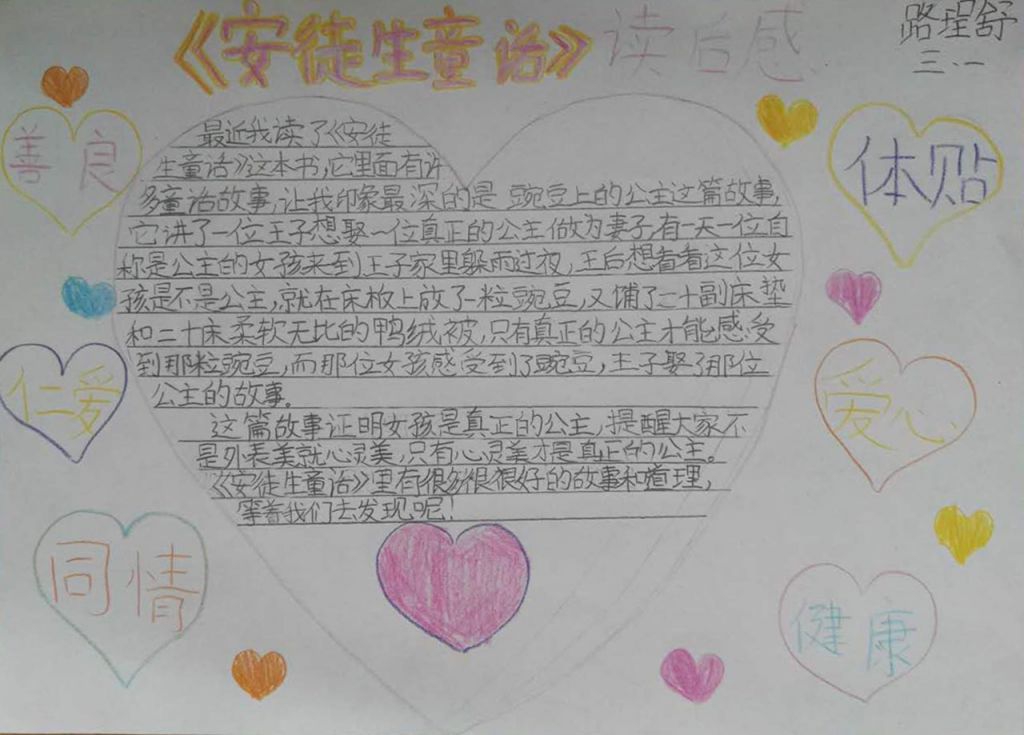 《安徒生童话》读后感
路珵舒
三.一
善良
体贴
最近我读了《安徒
生童话》这本书,它里面有许
多童话故事,让我印象最深的是豌豆上的公主这篇故事,
它讲了一位王子想娶一位真正的公主做为妻子,有一天一位自
称是公主的女孩来到王子家里躲雨过夜,王后想看看这位女
孩是不是公主,就在床板上放了一粒豌豆,又铺了二十副床垫
和二十床柔软无比的鸭绒被,只有真正的公主才能感受
到那粒豌豆,而那位女孩感受到了豌豆,王子娶了那位
公主的故事。
这篇故事证明女孩是真正的公主,提醒大家不
是外表美就心灵美,只有心灵美才是真正的公主。
《安徒生童话》里有很多很很好的故事和道理,
等着我们去发现呢!
仁爱
爱心
同情
健康